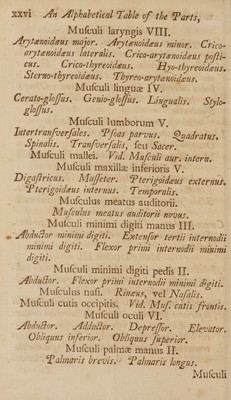 xxvi An Alphabetical Table of the Parts,
Muſculi laryngis VIII.
Arytænoidæus major. Arytænoidæus minor. Crico-
arytænoidæus lateralis. Crico-arytænoidæus poſti-
cus. Crico-thyreoidæus. Hyo-thyreoidæus.
Sterno-thyreoidæus. Thyreo-arytænoidæus.
Muſculi linguæ IV.
Cerato-gloſſus. Genio-gloſſus. Lingualis. Stylo-
gloſſus.
Muſculi lumborum V.
Intertranſverſales. Pſoas parvus. Quadratus.
Spinalis. Tranſverſalis, ſeu Sacer.
Muſculi mallei. Vid. Muſculi aur. intern.
Muſculi maxillæ inferioris V.
Digaſtricus. Maſſeter. Pterigoidæus externus.
Pterigoidæus internus. Temporalis.
Muſculus meatus auditorii.
Muſculus meatus auditorii novus.
Muſculi minimi digiti manus III.
Abductor minimi digiti. Extenſor tertii internodii
minimi digiti. Flexor primi internodii minimi
digiti.
Muſculi minimi digiti pedis II.
Abductor. Flexor primi internodii minimi digiti.
Muſculus naſi. Rinæus, vel Naſalis.
Muſculi cutis occipitis. Vid. Muſ. cutis frontis.
Muſculi oculi VI.
Abductor. Adductor. Depreſſor. Elevator.
Obliquus inferior. Obliquus ſuperior.
Muſculi palmæ manus II.
Palmaris brevis. Palmaris longus.
Muſculi